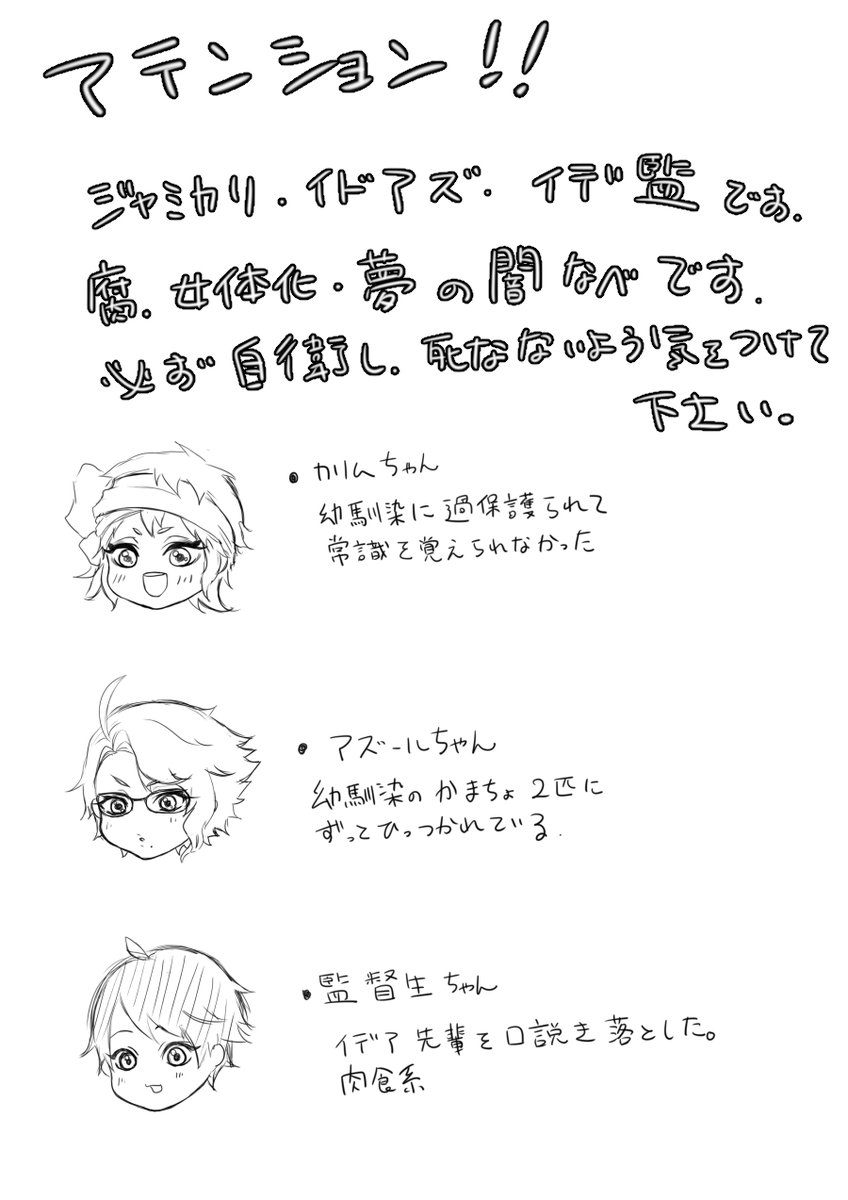 アテンション!!
ジャミカリ・イドアズ・イデ監です。
腐・女体化・夢の闇なべです。
必ず自衛し、死なないよう気をつけて
下さい。
・カリムちゃん
幼馴染に過保護られて
常識を覚えられなかった
・アズールちゃん
幼馴染のかまちょ2匹に
ずってひっつかれている.
・監督生ちゃん
イデア先輩を口説き落とした。
肉食系